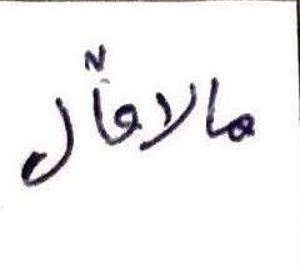 مالاقال